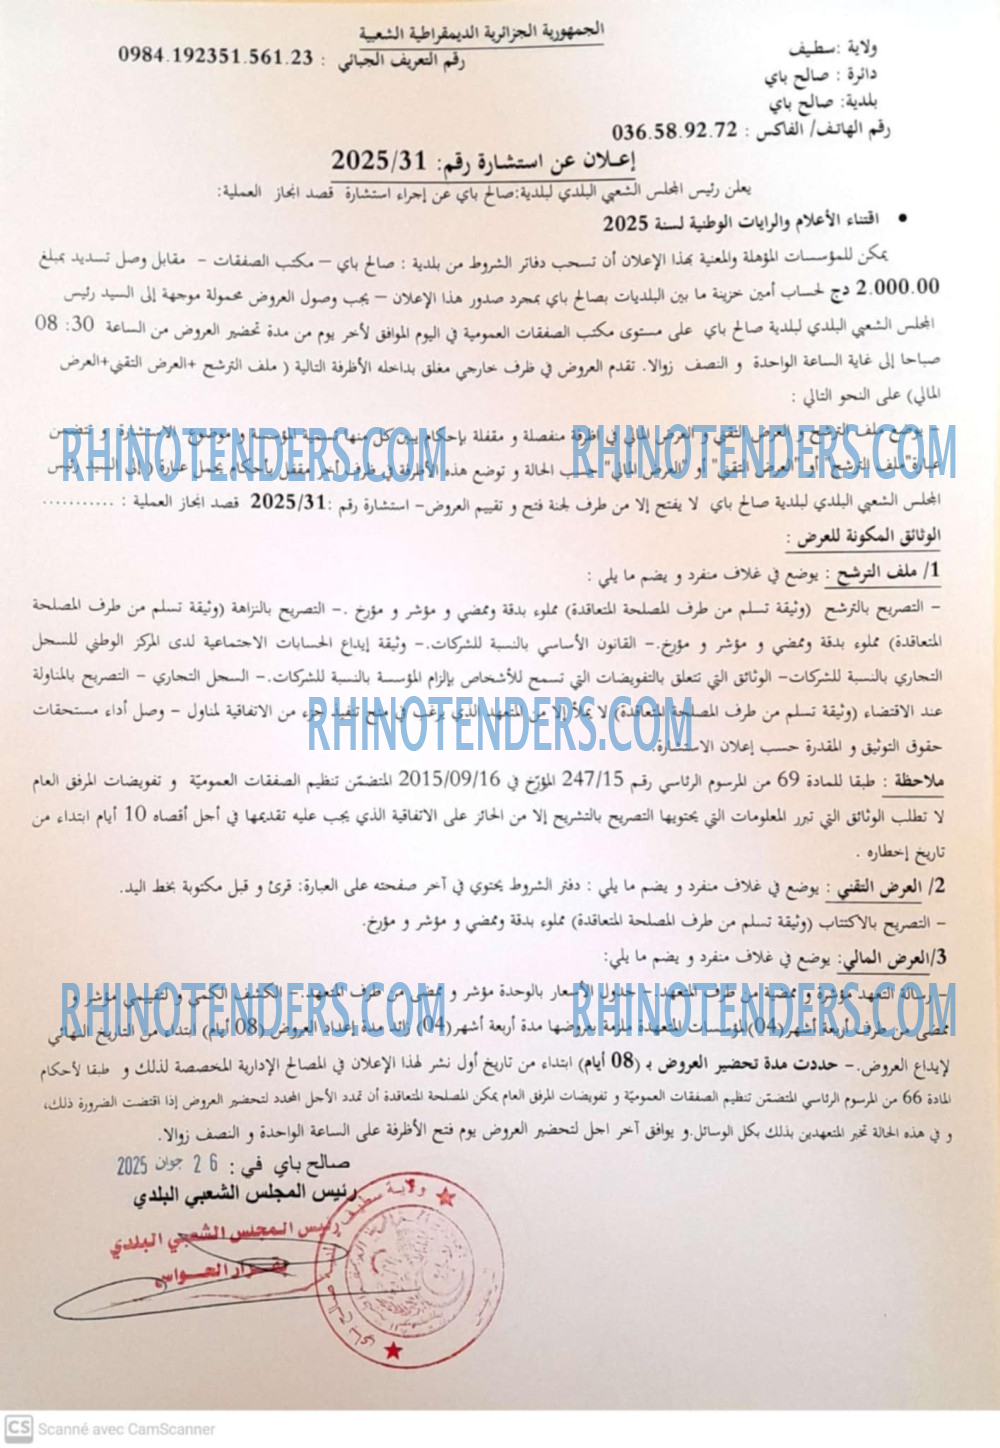 الجمهورية الجزائرية الديمقراطية الشعبية
ولاية :سطيف
رقم التعريف الجبائي : 0984.192351.561.23
دائرة : صالح باي
بلدية: صالح باي
رقم الهاتف/ الفاكس : 036.58.92.72
إعلان عن استشارة رقم: 2025/31
يعلن رئيس المجلس الشعبي البلدي لبلدية:صالح باي عن إجراء استشارة قصد انجاز العملية:
• اقتناء الأعلام والرايات الوطنية لسنة 2025
يمكن للمؤسسات المؤهلة والمعنية بهذا الإعلان أن تسحب دفاتر الشروط من بلدية : صالح باي – مكتب الصفقات - مقابل وصل تسديد بمبلغ
2.000.00 دج لحساب أمين خزينة ما بين البلديات بصالح باي بمجرد صدور هذا الإعلان – يجب وصول العروض محمولة موجهة إلى السيد رئيس
المجلس الشعبي البلدي لبلدية صالح باي على مستوى مكتب الصفقات العمومية في اليوم الموافق لأخر يوم من مدة تحضير العروض من الساعة 30: 08
صباحا إلى غاية الساعة الواحدة و النصف زوالا. تقدم العروض في ظرف خارجي مغلق بداخله الأظرفة التالية ( ملف الترشح +العرض التقني+العرض
المالي) على النحو التالي :
- يوضع ملف الترشح و العرض التقني و العرض المالي في أظرفة منفصلة و مقفلة بإحكام يبين كل منها تسمية المؤسسة و موضوع الاستشارة و تتضمن
عبارة"ملف الترشح" أو "العرض التقني" أو "العرض المالي" حسب الحالة و توضع هذه الأظرفة في ظرف آخر مقفل بأحكام يحمل عبارة (إلى السيد رئيس
المجلس الشعبي البلدي لبلدية صالح باي لا يفتح إلا من طرف لجنة فتح و تقييم العروض- استشارة رقم :2025/31 قصد انجاز العملية : ..........
الوثائق المكونة للعرض :
1/ ملف الترشح : يوضع في غلاف منفرد و يضم ما يلي :
- التصريح بالترشح (وثيقة تسلم من طرف المصلحة المتعاقدة) مملوء بدقة وممضي و مؤشر و مؤرخ .- التصريح بالنزاهة (وثيقة تسلم من طرف المصلحة
المتعاقدة) مملوء بدقة وممضي و مؤشر و مؤرخ.- القانون الأساسي بالنسبة للشركات.- وثيقة إيداع الحسابات الاجتماعية لدى المركز الوطني للسجل
التجاري بالنسبة للشركات- الوثائق التي تتعلق بالتفويضات التي تسمح للأشخاص بإلزام المؤسسة بالنسبة للشركات.- السجل التجاري - التصريح بالمناولة
عند الاقتضاء (وثيقة تسلم من طرف المصلحة المتعاقدة) لا يملأ إلا من المتعهد الذي يرغب في منح تنفيذ جزء من الاتفاقية لمناول - وصل أداء مستحقات
حقوق التوثيق و المقدرة حسب إعلان الاستشارة.
ملاحظة : طبقا للمادة 69 من المرسوم الرئاسي رقم 247/15 المؤرّخ في 2015/09/16 المتضمّن تنظيم الصفقات العموميّة و تفويضات المرفق العام
لا تطلب الوثائق التي تبرر المعلومات التي يحتويها التصريح بالتشريح إلا من الحائز على الاتفاقية الذي يجب عليه تقديمها في أجل أقصاه 10 أيام ابتداء من
تاريخ إخطاره .
2/ العرض التقني : يوضع في غلاف منفرد و يضم ما يلي : دفتر الشروط يحتوي في آخر صفحته على العبارة: قرئ و قبل مكتوبة بخط اليد.
- التصريح بالاكتتاب (وثيقة تسلم من طرف المصلحة المتعاقدة) مملوء بدقة وممضي و مؤشر و مؤرخ.
3/العرض المالي: يوضع في غلاف منفرد و يضم ما يلي:
- رسالة التعهد مؤشرة و ممضية من طرف المتعهد – جدول الأسعار بالوحدة مؤشر و ممضى من طرف المتعهد.- الكشف الكمي و التقييمي مؤشر و
ممضى من طرف أربعة أشهر(04)المؤسسات المتعهدة ملزمة بعروضها مدة أربعة أشهر(04) زائد مدة إعداد العروض (08 أيام) ابتداء من التاريخ النهائي
لإيداع العروض.- حددت مدة تحضير العروض بـ (08 أيام) ابتداء من تاريخ أول نشر لهذا الإعلان في المصالح الإدارية المخصصة لذلك و طبقا لأحكام
المادة 66 من المرسوم الرئاسي المتضمّن تنظيم الصفقات العموميّة و تفويضات المرفق العام يمكن المصلحة المتعاقدة أن تمدد الأجل المحدد لتحضير العروض إذا اقتضت الضرورة ذلك،
و في هذه الحالة تخبر المتعهدين بذلك بكل الوسائل.و يوافق آخر اجل لتحضير العروض يوم فتح الأظرفة على الساعة الواحدة و النصف زوالا.
صالح باي في : 26 جوان 2025
رئيس المجلس الشعبي البلدي
رئيس المجلس الشعبي البلدي
ولاية سطيف
RHINOTENDERS.COM
RHINOTENDERS.COM
RHINOTENDERS.COM
RHINOTENDERS.COM
RHINOTENDERS.COM
CS Scanné avec CamScanner